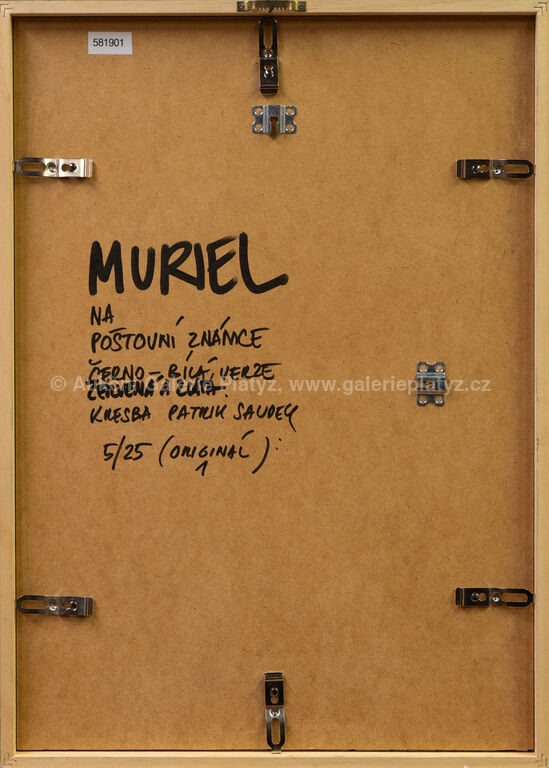 581901
MURIEL
NA
POŠTOVNÍ ZNÁMCE
ČERNO-BÍLÁ VERZE
ČERVENÁ A
KRESBA PATRIK SAUDEK
5/25 (ORIGINAĹ):
© Galerie Platýz, www.galerieplatyz.cz